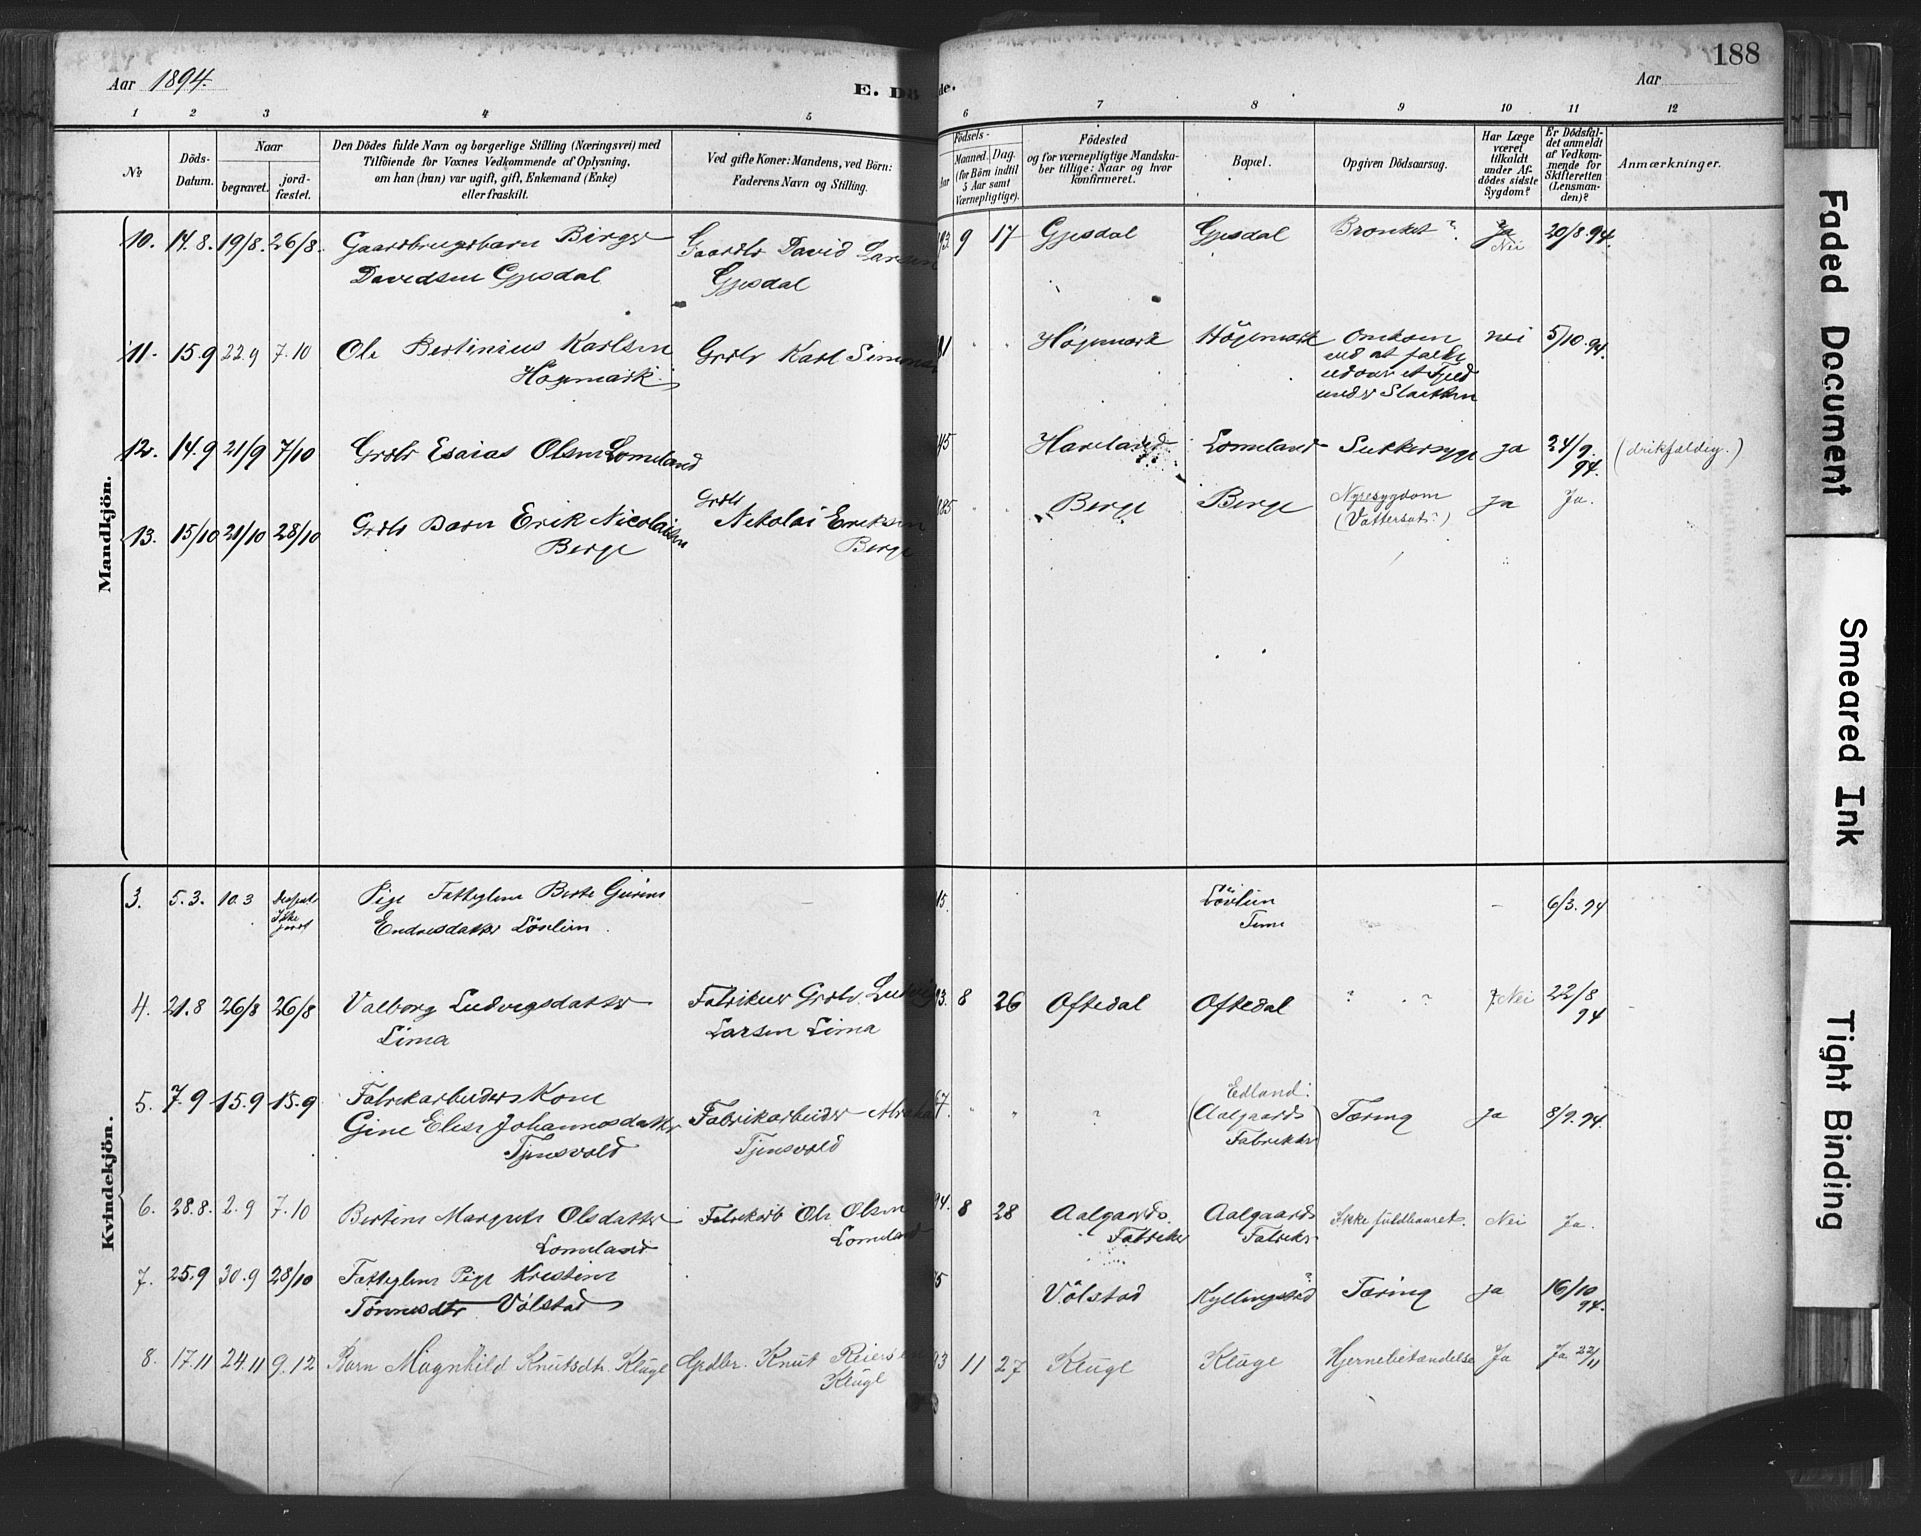 188
Aar 1894.
E. Dö de.
Aar
1 2 3 4 5 6 7 8 9 10 11 12
No
Döds-
Datum.
Naar
begravet.
jord-
fæstet.
Den Dödes fulde Navn og borgerlige Stilling (Næringsvei) med
Tilföiende for Voxnes Vedkommende af Oplysning,
om han (hun) var ugift, gift, Enkemand (Enke)
eller fraskilt.
Ved gifte Koner: Mandens, ved Börn:
Faderens Navn og Stilling.
Födsels-
Aar
Maaned. Dag.
(for Börn indtil
5 Aar samt
Værnepligtige).
Födested
og for værnepligtige Mandska-
ber tillige: Naar og hvor
konfirmeret.
Bopæl.
Opgiven Dödsaarsag.
Har Læge
været
tilkaldt
under Af-
dödes sidste
Sygdom?
Er Dödsfal-
det anmeldt
af Vedkom-
mende for
Skifteretten
(Lensman-
den)?
Anmærkninger.
Mandkjön.
10. 14.8. 19/8. 26/8. Gaardbrugsbarn Birger Gaardbr David Larsen 93. 9 17 Gjesdal Gjesdal Bronkit? Ja 20/8.94.
Davidsen Gjesdal Gjesdal Nei
11. 15.9 22.9 7.10 Ole Bertinius Karlsen Grdbr Karl Simonsen 81 Højemark Højemark Omkom nei 5/10.94.
Højemark. ved at falde
udover et Fjeld
under Slaatten
12. 14.9 21/9 7/10 Grdbr Esaias Olsen Lomeland 45 Haveland Lomeland Sukkersyge ja 24/9. (drikfældig.)
94.
13. 15/10 21/10 28/10 Grdbr Barn Erik Nicolaisen Grdbr 885 Berge Berge Nyresygdom ja Ja.
Berge Nikolai Eriksen (Vattersot?)
Berge
Kvindekjön.
3. 5.3. 10.3 Ikke Pige Fattiglem Berte Gurine 15. Lövlien - 6/3.94
Endresdatter Lövlien. Time
4. 21.8 26/8 26/8 Valborg Ludvigsdatter Fabrikeier Grdbr. Ludvig 93. 8 26 Oftedal Oftedal ? ? Nei 22/8
Lima Larsen Lima 94
5. 7.9 15.9 15.9 Fabrikarbeiders Kone 67. Edland.
Gine Elise Johannesdatter Fabrikarbeider Abraham ? (Aalgaards Tæring ja 8/9.94.
Tjensvold Tjensvold Fabrikker)
6. 28.8. 2.9 7.10 Bertine Margrete Olsdatter Fabrikarb Ole Olsen 94. 8 28 Aalgaards Aalgaards Ikke fuldbaaret. Nei Ja.
Lomeland Lomeland Fabriker Fabriker
7. 25.9 30.9 28/10 Fattiglem Pige Kristine 75 Völstad Kyllingstad? Tæring ja 16/10
Tönnesdtr Völstad 94.
8. 17.11 24.11 9.12 Barn Magnhild Knutsdtr. Kluge Gpdbr. Knut Reiersen 93 11 27 Kluge Kluge Hjernebetændelse Ja Ja 22/11
Kluge
Faded Document
Smeared Ink
Tight Binding